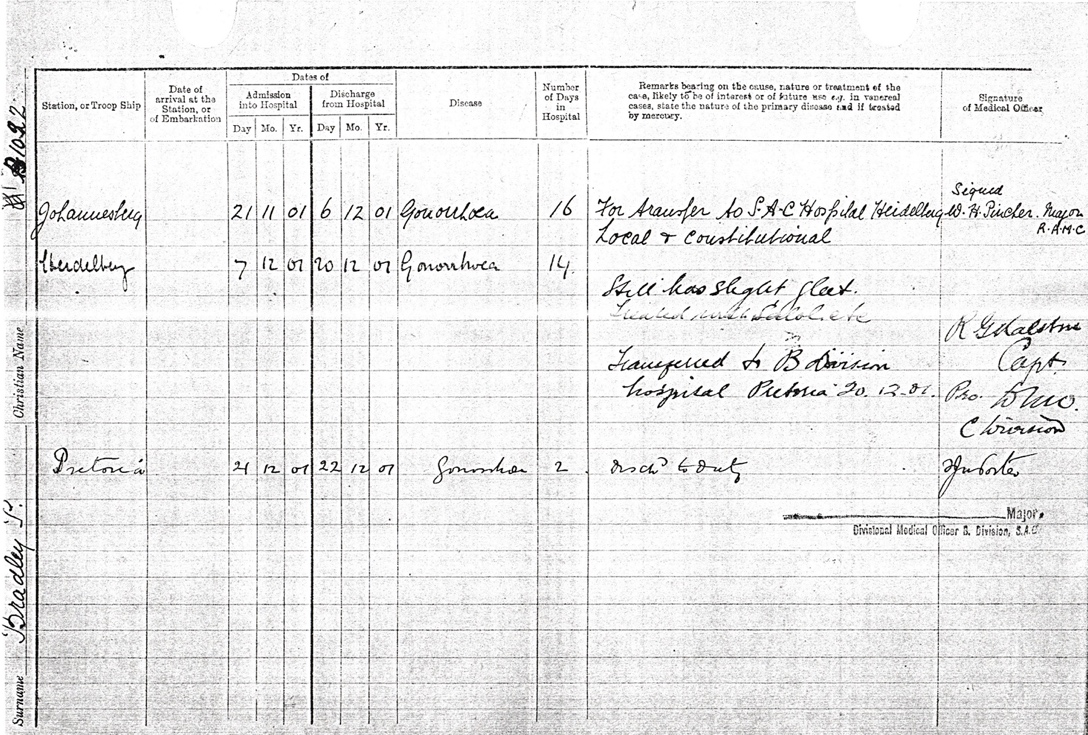 Dates of
Station, or Troop Ship
Date of arrival at the Station, or of Embarkation
Admission into Hospital
Discharge from Hospital
Disease
Number of Days in Hospital
Remarks bearing on the cause, nature or treatment of the
case, likely to be of interest or of future use e.g. in venereal
cases, state the nature of the primary disease and if treated
by mercury.
Signature of Medical Officer
Day Mo. Yr. Day Mo. Yr.
Signed
Johannesberg 21 11 01 6 12 01 Gonorrhoea 16 For transfer to S.A.C Hospital Heidelberg W. H. Pincher. Major
R.A.M.C
Local & Constitutional
Heidelberg 7 12 01 20 12 01 Gonorrhoea 14
Still has slight gleet.
Treated with
Transferred to B Division Capt.
hospital Pretoria 20.12.01. Pro. D.M.O.
C Division
Pretoria 21 12 01 22 12 01 Gonorrhoea 2 Disch to duty
Major,
Divisional Medical Officer B. Division, S.A.C.
Surname Bradley P. Christian Name 1092